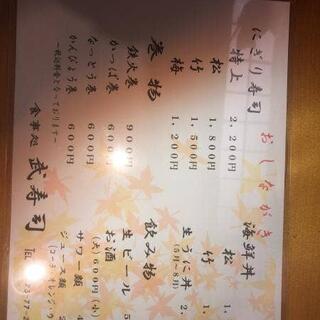 おしながき
にぎり寿司
特上 2,200円
松 1,800円
竹 1,500円
梅 1,200円
巻物
鉄火巻 900円
かっぱ巻 600円
なっとう巻 600円
かんぴょう巻 600円
―税込料金となっております―
海鮮丼
松 1,
竹 1,
生うに丼 2,
(5月〜8月)
飲み物
生ビール 5
お酒
(大)600円(小)
サワー類 4
ジュース類 2
食事処 武寿司 TEL